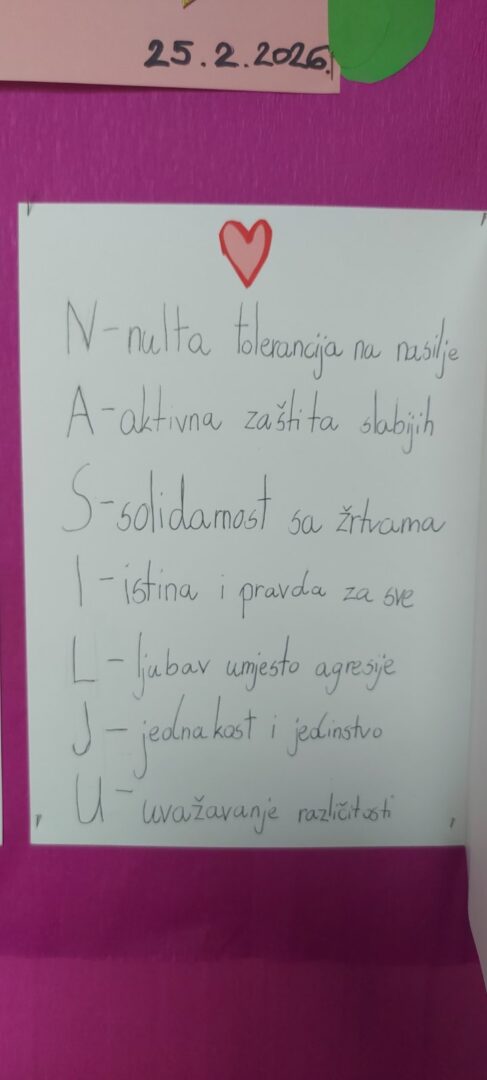 25.2.2026.
N-nulta tolerancija na nasilje
A-aktivna zaštita slabijih
S-solidarnost sa žrtvama
I-istina i pravda za sve
L-ljubav umjesto agresije
J-jednakost i jedinstvo
U-uvažavanje različitosti